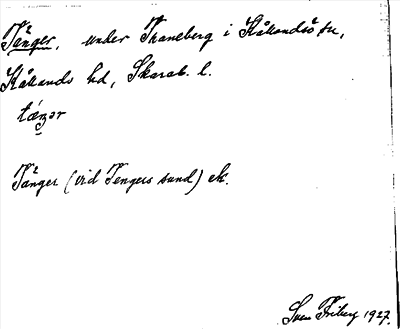 Tånger, under Traneberg i Kållandsö sn,
Kållands hd, Skarab. l.
tǽŋər
Tånger (vid Tengers sund) ek.
Sven Friberg 1927.